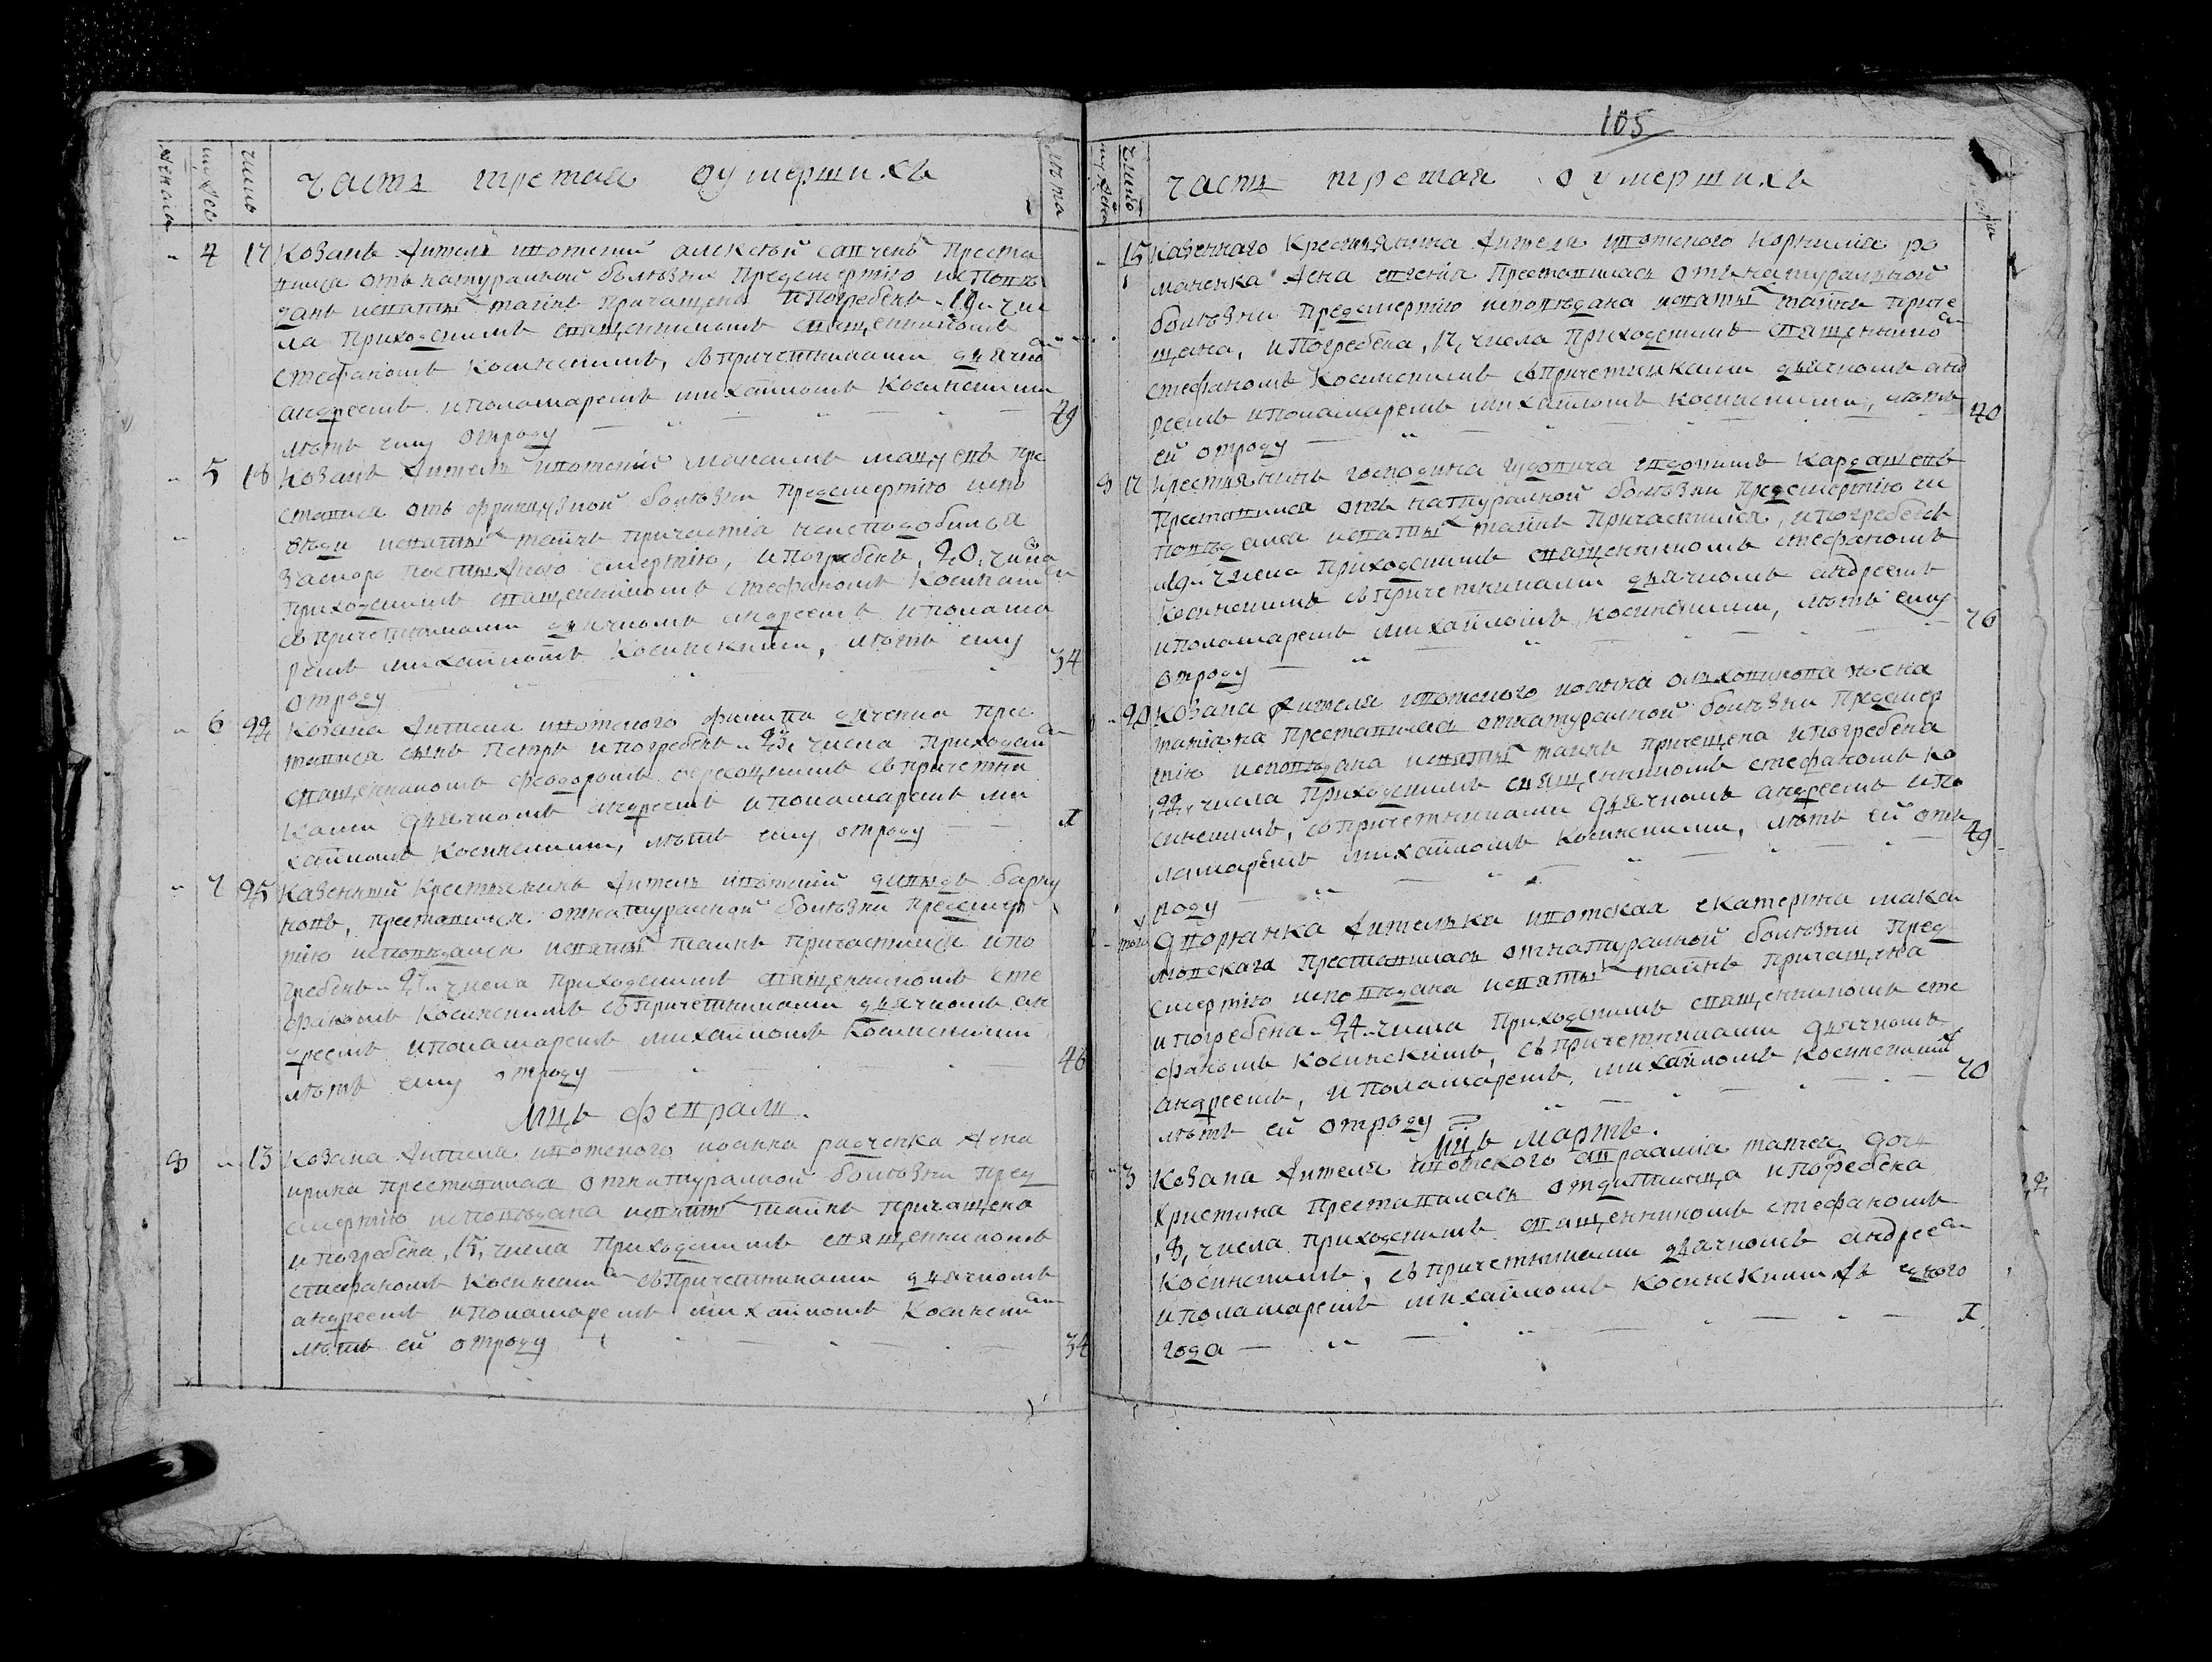 105
женск
муж пол
число
часть третая оумершихъ
лѣта
4 17 Козакъ житель ипотский алексѣй савченъ преста
вился отъ натуралной болѣзни предсмертію исповѣ
данъ исвятыхъ таинъ причащенъ ипогребенъ 19 чи
сла приходскимъ священникомъ священникомъ
стефаномъ косинскимъ, съпричетниками дьячко
андреемъ ипономаремъ михайломъ косинскими
лѣтъ ему отроду 49
5 18 Козакъ житель ипотский
ставился отъ французкой болѣзни предсмертію испо
вѣди исвятыхъ таинъ причастія неисподобился
заскоро постижною смертію, ипогребенъ, 20, числа
приходскимъ священникомъ стефаномъ косинским
съпричетниками дьячкомъ андреемъ ипонома
ремъ михайломъ косинскими, лѣтъ ему
отроду 34
6 22 Козака жителя ипотского филипа дяченка прес
тавился сынъ петръ ипогребенъ 23, числа приходским
священникомъ феодоромъ съпричетни
ками дьячкомъ андреемъ ипономаремъ ми
хайломъ косинскими, лѣтъ ему отроду 1
7 25 Казенный крестьянинъ житель ипотский
преставился отнатуралной болѣзни предсмер
тію исповѣдался исвятыхъ таинъ причастился ипо
гребенъ 27 числа приходскимъ священникомъ сте
фаномъ косинскимъ съпричетниками дьячкомъ ан
дреемъ ипономаремъ михайломъ косинскими
лѣтъ ему отроду 46
мць февраль.
8 13 Козака жителя ипотского иоанна радченка жена
ирина преставилась отнатуралной болѣзни пред
смертію исповѣдана исвятыхъ таинъ причащена
ипогребена, 15, числа приходскимъ священникомъ
стефаномъ косинским съпричетниками дьячкомъ
андреемъ ипономаремъ михайломъ косинским
лѣтъ ей отроду 34
число
часть третая оумершихъ
15 Казеннаго крестьянина жителя ипотского корнилия ро
маненка жена преставилась отънатуралной
болѣзни предсмертію исповѣдана исвятыхъ таинъ приче
щена, ипогребена, 17, числа приходскимъ священнико
стефаномъ косинскимъ съпричетниками дьячкомъ анд
реемъ ипономаремъ михайломъ косинскими, лѣтъ
ей отроду 40
8 17 Крестьянинъ господина гудовича кардашевъ
преставился отъ натуралной болѣзни предсмертію ис
повѣдался исвятыхъ таинъ причастился, ипогребенъ
19 числа приходскимъ священникомъ стефаномъ
косинскимъ съпричетниками дьячкомъ андреемъ
ипономаремъ михайломъ косинскими, лѣтъ ему
отроду 76
20 Козака жителя ипотского иоанна жена
татіана преставилась отнатуралной болѣзни предсмер
тію исповѣдана исвятыхъ таинъ причещена ипогребена
22, числа приходскимъ священникомъ стефаномъ ко
синскимъ, съпричетниками дьячкомъ андреемъ ипо
номаремъ михайломъ косинскими, лѣтъ ей отъ
роду 49
дворянка жителька ипотская екатерина
преставилась отнатуралной болѣзни пред
смертію исповѣдана исвятыхъ таинъ причащена
ипогребена 24 числа приходскимъ священникомъ сте
фаномъ косинскимъ, съпричетниками дьячкомъ
андреемъ, ипономаремъ, михайломъ косинскими
лѣтъ ей отроду 70
мць мартъ.
3 Козака жителя ипотского авраамія дочь
христина преставилась ипогребена
числа приходскимъ священникомъ стефаномъ
косинскимъ, съпричетниками дьячкомъ андрее
ипономаремъ михайломъ косинскими едного
года 1